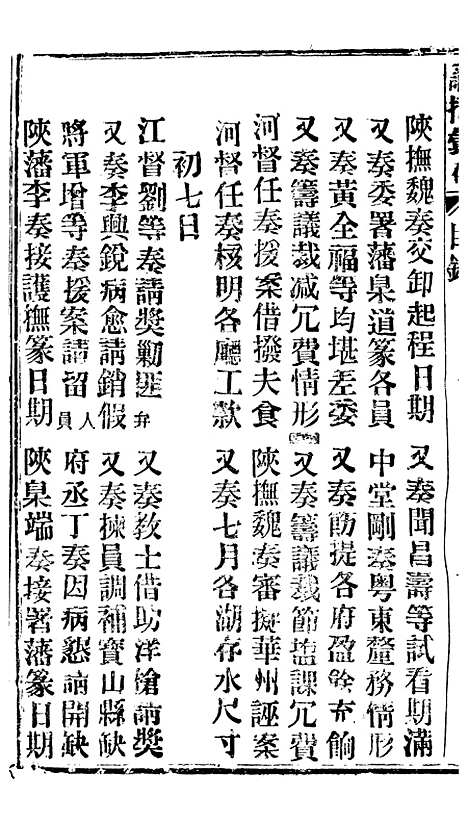 諭摺彙存 目錄
陝撫魏奏交卸起程日期 又奏聞昌壽等試看期滿
又奏委署藩臬道篆各員 中堂剛奏粵東釐務情形
又奏黃全福等均堪差委 又奏飭提各府盈餘充餉
又奏籌議裁减冗費情形 又奏籌議裁節塩課冗費
河督任奏援案借撥夫食 陝撫魏奏審擬華州誣案
河督任奏核明各廳工款 又奏七月各湖存水尺寸
初七日
江督劉等奏請獎勦匪弁 又奏敎士借助洋鎗請獎
又奏李興銳病愈請銷假 又奏揀員調補寶山縣缺
將軍增等奏援案請留人員 府丞丁奏因病懇請開缺
陝藩李奏接護撫篆日期 陝臬端奏接署藩篆日期